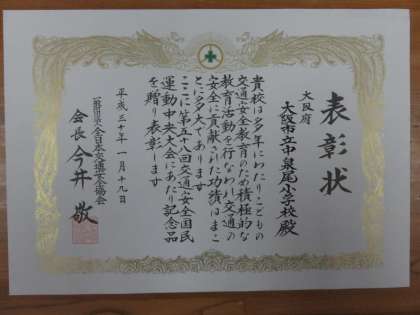 表彰状
大阪府
大阪市立中泉尾小学校殿
貴校は多年にわたりこどもの
交通安全教育のため積極的な
教育活動を行なわれ交通の
安全に貢献された功績はまこ
とに多大であります
ここに第五十八回交通安全国民
運動中央大会にあたり記念品
を贈り表彰します
平成三十年一月十九日
一般財団法人全日本交通安全協会
会長 今井 敬